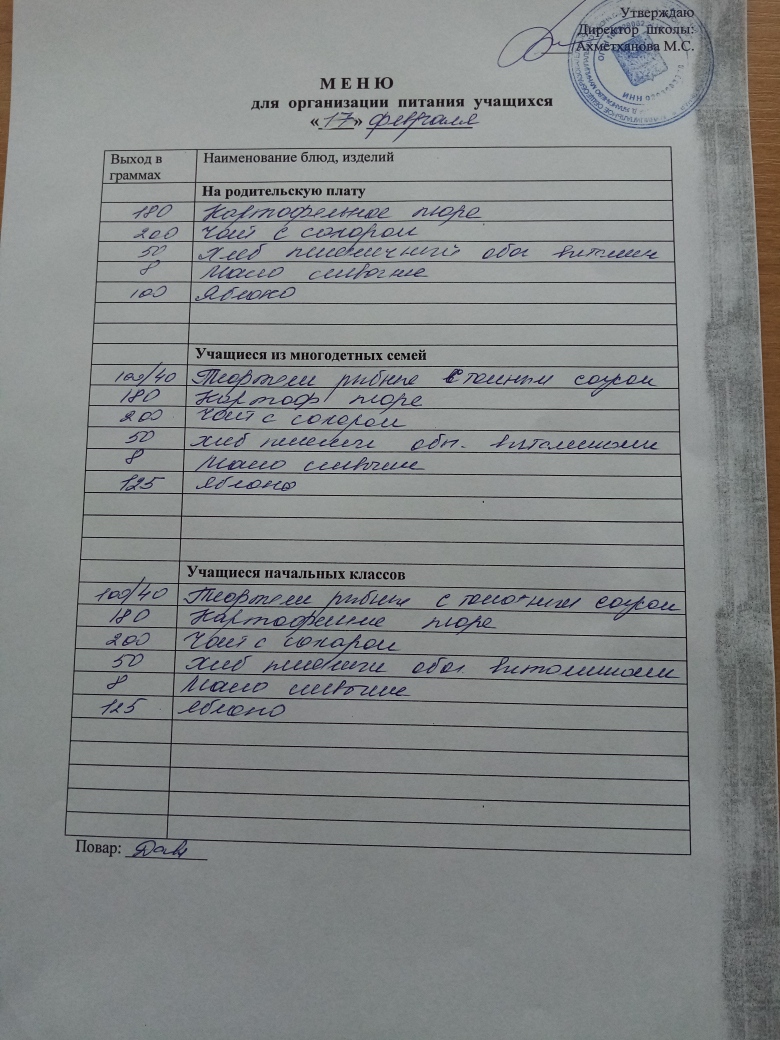 Утверждаю
Директор школы:
Ахметханова М.С.
М Е Н Ю
для организации питания учащихся
«17» февраля
Выход в граммах Наименование блюд, изделий
На родительскую плату
180 Картофельное пюре
200 Чай с сахаром
50 Хлеб пшеничный обог витамин
8 Масло сливочное
100 Яблоко
Учащиеся из многодетных семей
100/40 Тефтели рыбные с томным соусом
180 Картоф пюре
200 Чай с сахаром
50 хлеб пшенич обог. витаминами
8 Масло сливочн
125 яблоко
Учащиеся начальных классов
100/40 Тефтели рыбные с томатным соусом
180 Картофельное пюре
200 Чай с сахаром
50 хлеб пшенич обог. витаминами
8 Масло сливочн
125 яблоко
Повар: